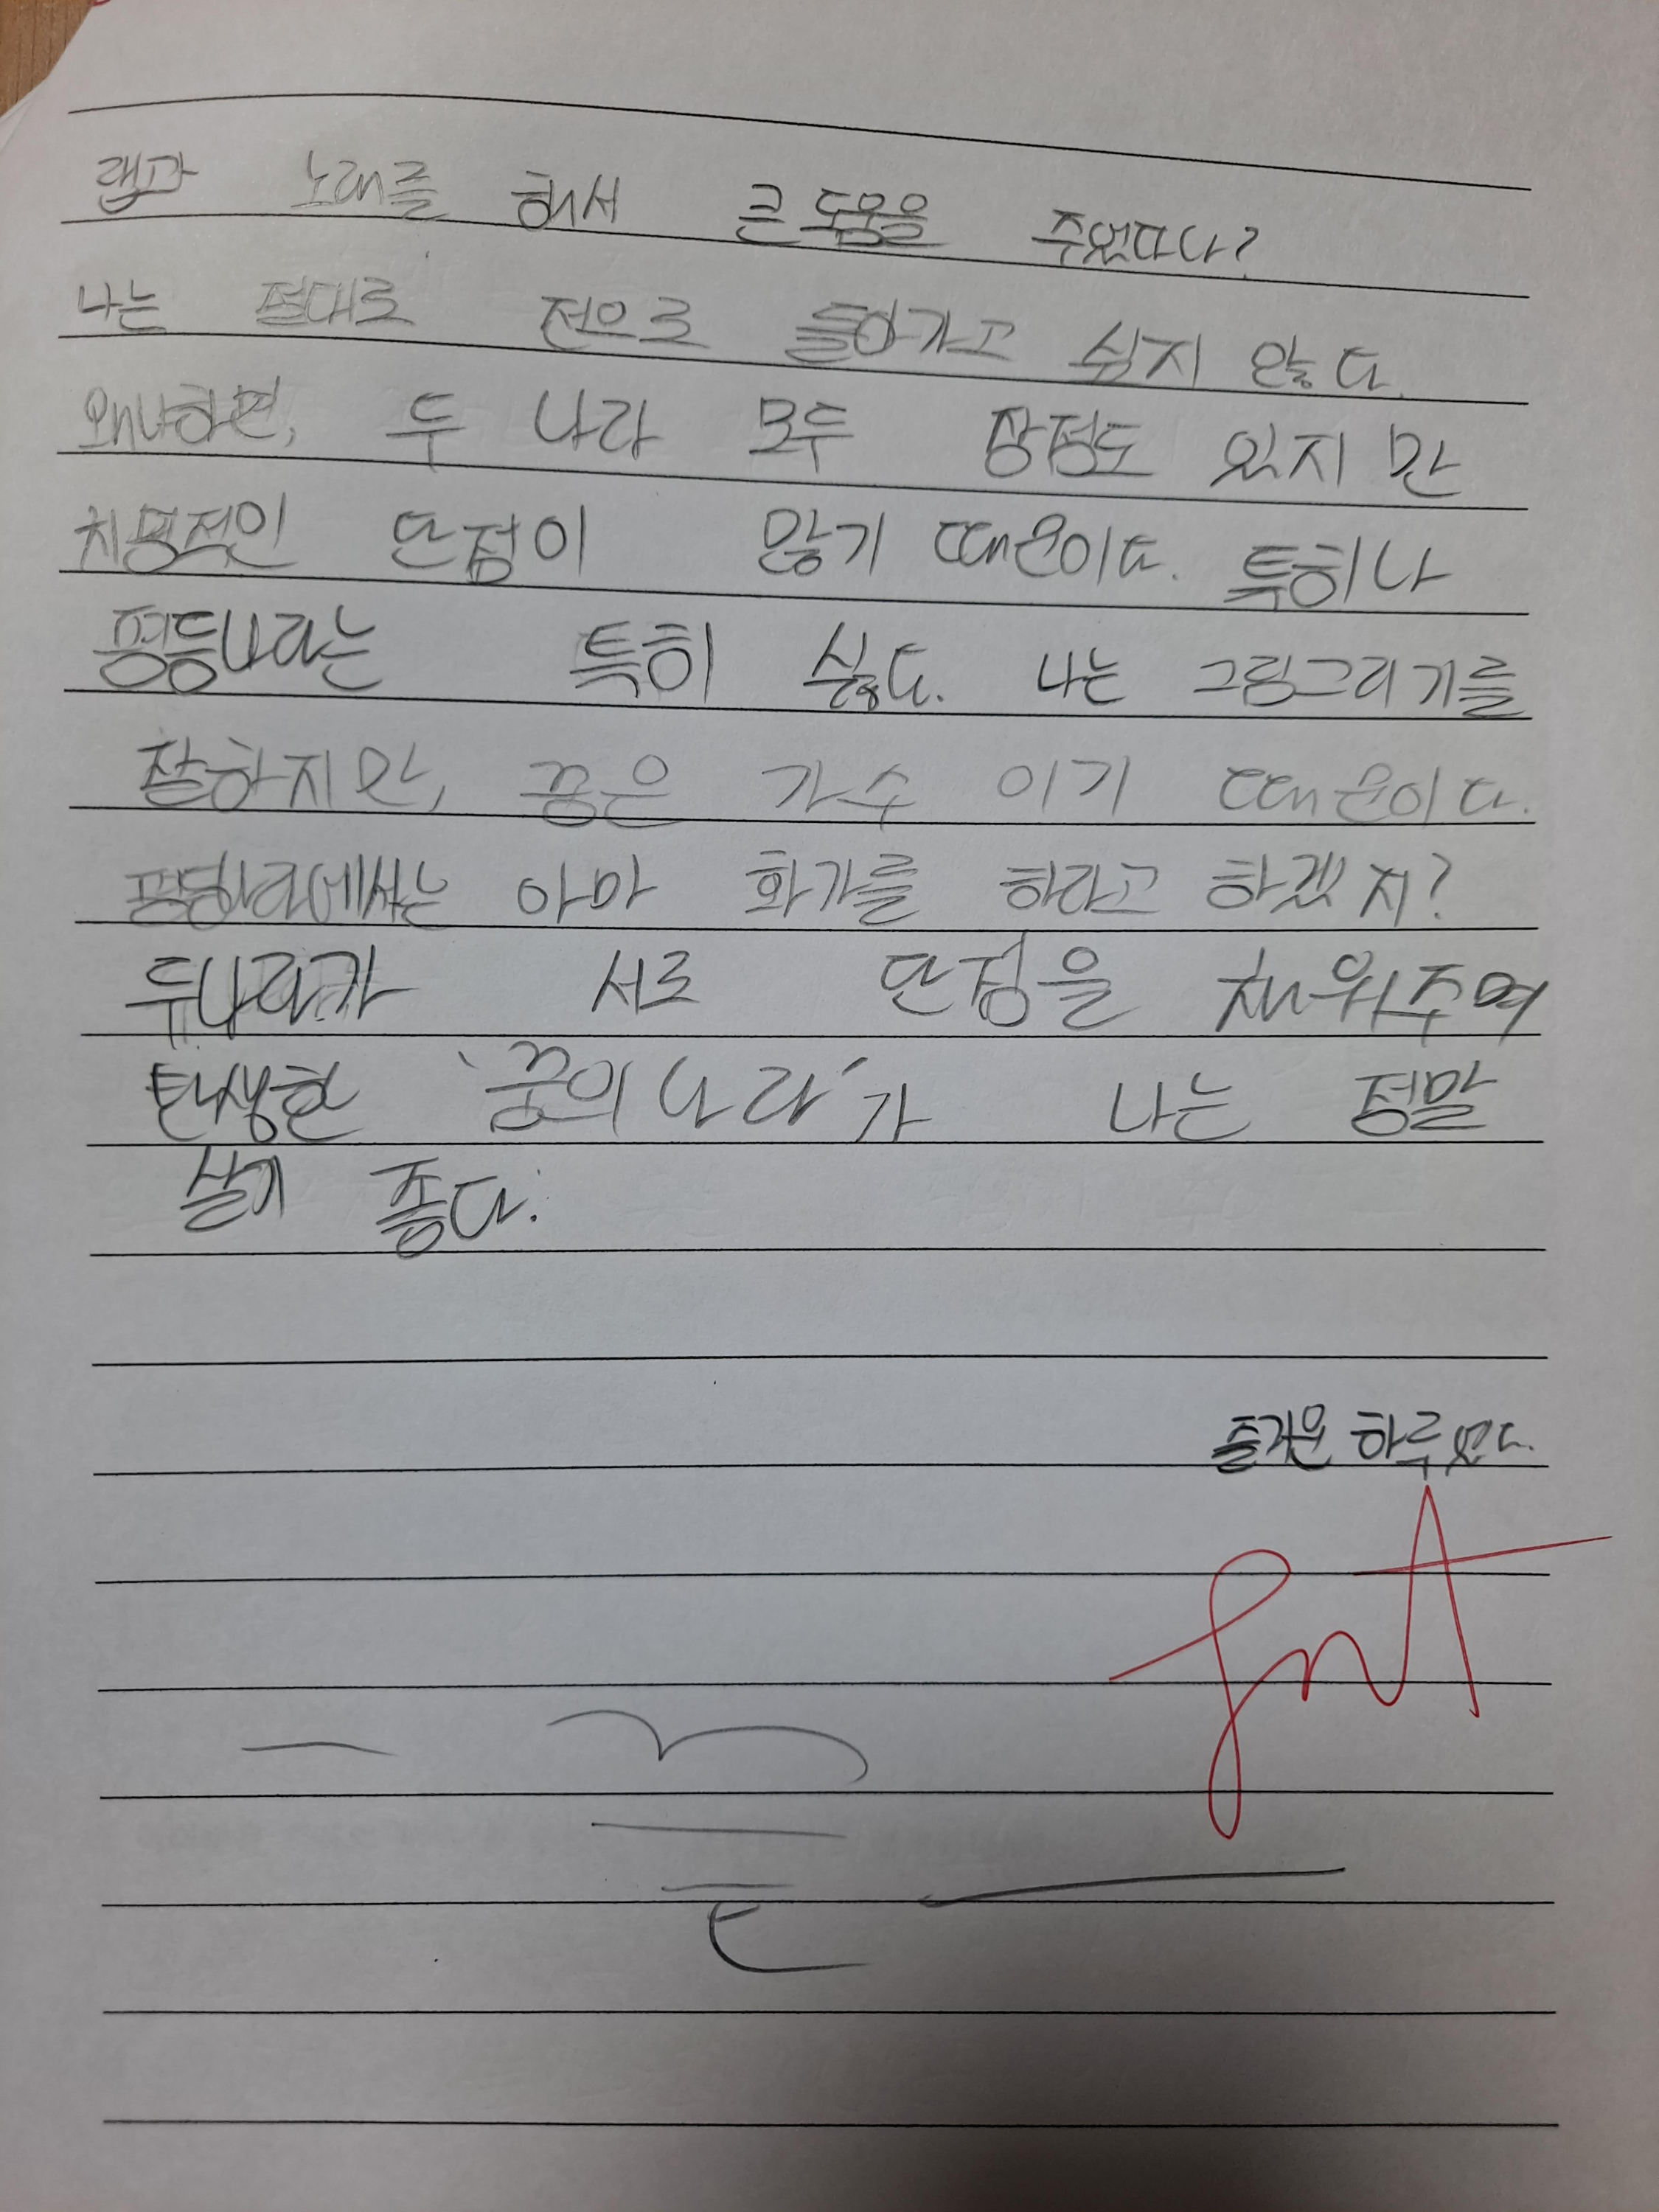 랩과 노래를 해서 큰 도움을 주었다나?
나는 절대로 전으로 들아가고 싶지 않다.
왜냐하면, 두 나라 모두 장점도 있지만
치명적인 단점이 많기 때문이다. 특히나
평등나라는 특히 싫다. 나는 그림그리기를
잘하지만, 꿈은 가수 이기 때문이다.
평등나라에서는 아마 화가를 하라고 하겠지?
두나라가 서로 단점을 채워주며
탄생한 '꿈의 나라'가 나는 정말
살기 좋다.
즐거운 하루였다.